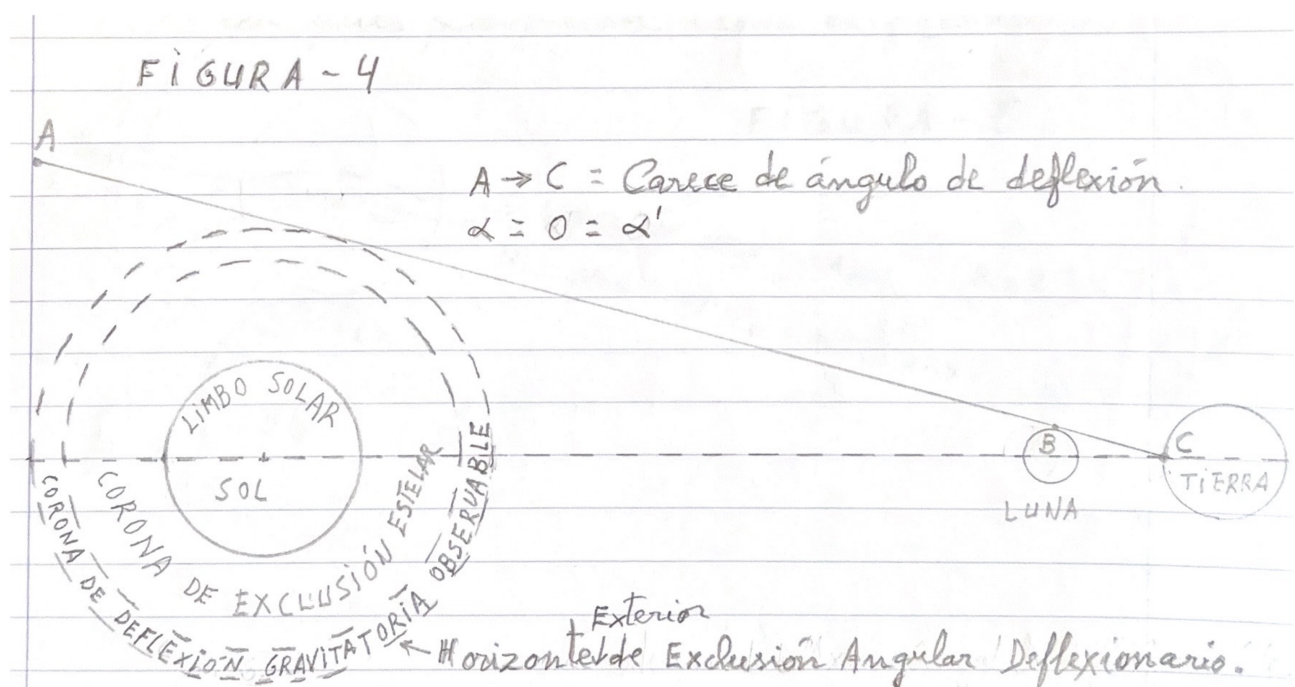 FIGURA-4
A
A → C = Carece de ángulo de deflexión.
α = 0 = α'
LIMBO SOLAR
SOL
CORONA DE EXCLUSIÓN ESTELAR
CORONA DE DEFLEXION GRAVITATORIA OBSERVABLE
B
LUNA
C
TIERRA
Exterior
← Horizonte de Exclusión Angular Deflexionario.